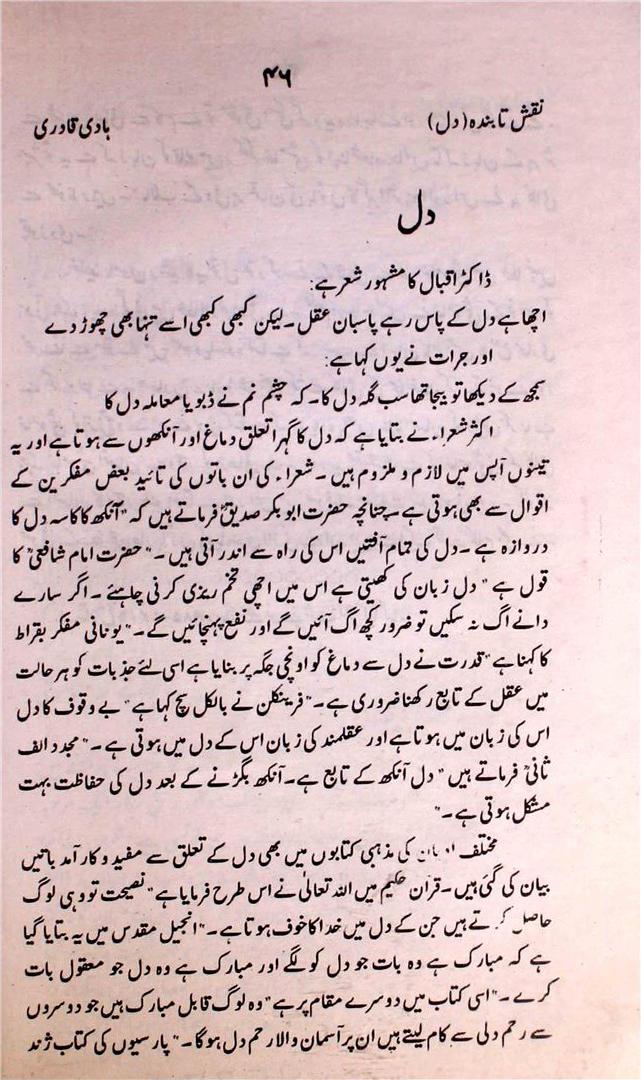 ۴۶
نقش تابندہ (دل)
ہادی قادری
دل
ڈاکٹر اقبال کا مشہور شعر ہے:
اچھا ہے دل کے پاس رہے پاسبان عقل۔ لیکن کبھی کبھی اسے تنہا بھی چھوڑ دے
اور جرات نے یوں کہا ہے:
سمجھ کے دیکھا تو بیجا تھا سب گلہ دل کا۔ کہ چشم نم نے ڈبویا معاملہ دل کا
اکثر شعراء نے بتایا ہے کہ دل کا گہرا تعلق دماغ اور آنکھوں سے ہوتا ہے اور یہ
تینوں آپس میں لازم و ملزوم ہیں۔ شعراء کی ان باتوں کی تائید بعض مفکرین کے
اقوال سے بھی ہوتی ہے۔ چنانچہ حضرت ابو بکر صدیقؓ فرماتے ہیں کہ "آنکھ کا کاسہ دل کا
دروازہ ہے۔ دل کی تمام آفتیں اس کی راہ سے اندر آتی ہیں۔" حضرت امام شافعیؒ کا
قول ہے "دل زبان کی کھیتی ہے اس میں اچھی تخم ریزی کرنی چاہئے۔ اگر سارے
دانے اگ نہ سکیں تو ضرور کچھ اگ آئیں گے اور نفع پہنچائیں گے۔" یونانی مفکر بقراط
کا کہنا ہے "قدرت نے دل سے دماغ کو اونچی جگہ پر بنایا ہے اسی لئے جذبات کو ہر حالت
میں عقل کے تابع رکھنا ضروری ہے۔" فرینکلن نے بالکل سچ کہا ہے "بے وقوف کا دل
اس کی زبان میں ہوتا ہے اور عقلمند کی زبان اس کے دل میں ہوتی ہے۔" مجدد الف
ثانیؒ فرماتے ہیں "دل آنکھ کے تابع ہے۔ آنکھ بگڑنے کے بعد دل کی حفاظت بہت
مشکل ہوتی ہے۔"
مختلف کی مذہبی کتابوں میں بھی دل کے تعلق سے مفید و کارآمد باتیں
بیان کی گئی ہیں۔ قرآن حکیم میں اللہ تعالیٰ نے اس طرح فرمایا ہے "نصیحت تو وہی لوگ
حاصل کرتے ہیں جن کے دل میں خدا کا خوف ہوتا ہے۔" انجیل مقدس میں یہ بتایا گیا
ہے کہ مبارک ہے وہ بات جو دل کو لگے اور مبارک ہے وہ دل جو معقول بات
کرے۔" اسی کتاب میں دوسرے مقام پر ہے "وہ لوگ قابل مبارک ہیں جو دوسروں
سے رحم دلی سے کام لیتے ہیں ان پر آسمان والا رحم دل ہوگا۔" پارسیوں کی کتاب ژند